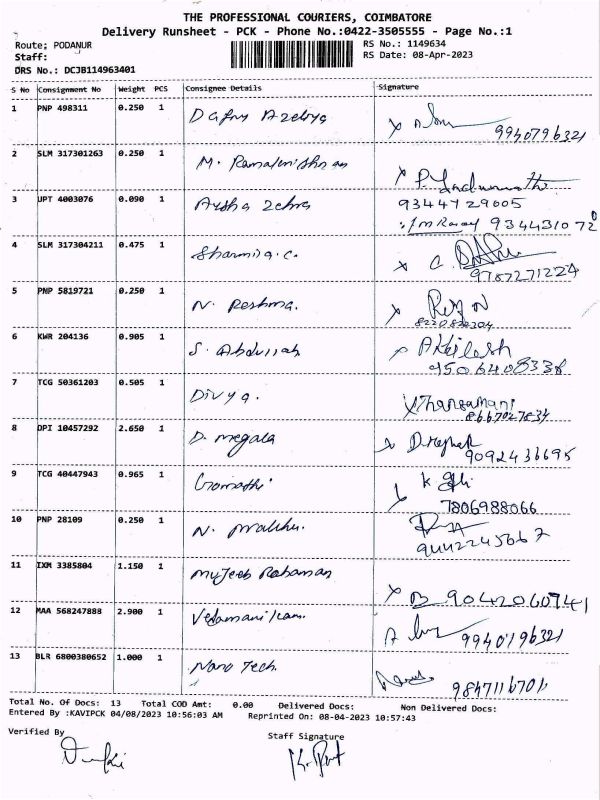 THE PROFESSIONAL COURIERS, COIMBATORE
Delivery Runsheet - PCK - Phone No.:0422-3505555 - Page No.:1
Route; PODANUR RS No.: 1149634
Staff: RS Date: 08-Apr-2023
DRS No.: DCJB114963401
S No Consignment No Weight PCS Consignee Details Signature
1 PNP 498311 0.250 1 X 9940796321
2 SLM 317301263 0.250 1 M. Ramakrishnan X P.
3 UPT 4003076 0.090 1 Aysha Zehra 9344729005
9344310720
4 SLM 317304211 0.475 1 Sharmila.C. X C.
9787271224
5 PNP 5819721 0.250 1 N. Reshma. X
8220822204
6 KWR 204136 0.905 1 S. Abdullah X Akilash
9506408338
7 TCG 50361203 0.505 1 Divya. X Thangamani
8667027834
8 DPI 10457292 2.650 1 D. megala X D.
9092436695
9 TCG 40447943 0.965 1 Gomathi K
7806988066
10 PNP 28109 0.250 1 N.
9442245667
11 IXM 3385804 1.150 1 Mujeeb Rahaman
X 9042060941
12 MAA 568247888 2.900 1 Vedamanikam. 9940796321
13 BLR 6800380652 1.000 1 Nano Tech.
9847116701
Total No. Of Docs: 13 Total COD Amt: 0.00 Delivered Docs: Non Delivered Docs:
Entered By :KAVIPCK 04/08/2023 10:56:03 AM Reprinted On: 08-04-2023 10:57:43
Verified By Staff Signature